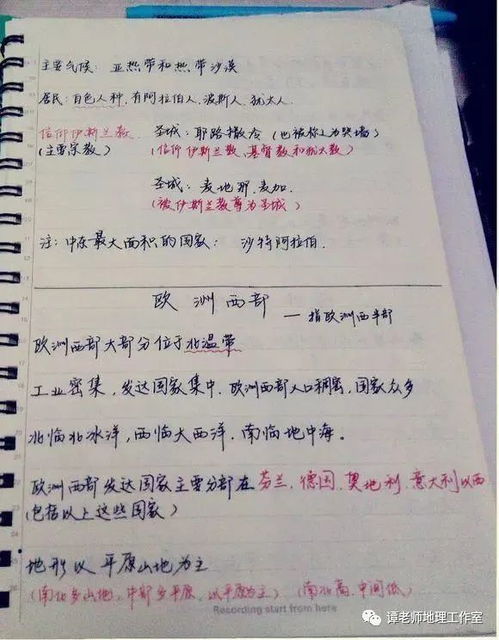 主要气候: 亚热带和热带沙漠
居民: 白色人种, 有阿拉伯人、波斯人、犹太人.
信仰伊斯兰教 圣城: 耶路撒冷 (也被称之为哭墙)
(主要宗教) (信仰伊斯兰教、基督教和犹太教)
圣城: 麦地那、麦加.
(被伊斯兰教尊为圣城)
注: 中东最大面积的国家: 沙特阿拉伯.
欧洲西部
—指欧洲西半部
欧洲西部大部分位于北温带
工业密集, 发达国家集中, 欧洲西部人口稠密, 国家众多
北临北冰洋, 西临大西洋, 南临地中海。
欧洲西部发达国家主要分部在芬兰、德国、奥地利、意大利以西
(包括以上这些国家)
地形以平原山地为主
(南北多山地, 中部多平原, 以平原为主) (南北高, 中间低)
Recording start from here
谭老师地理工作室